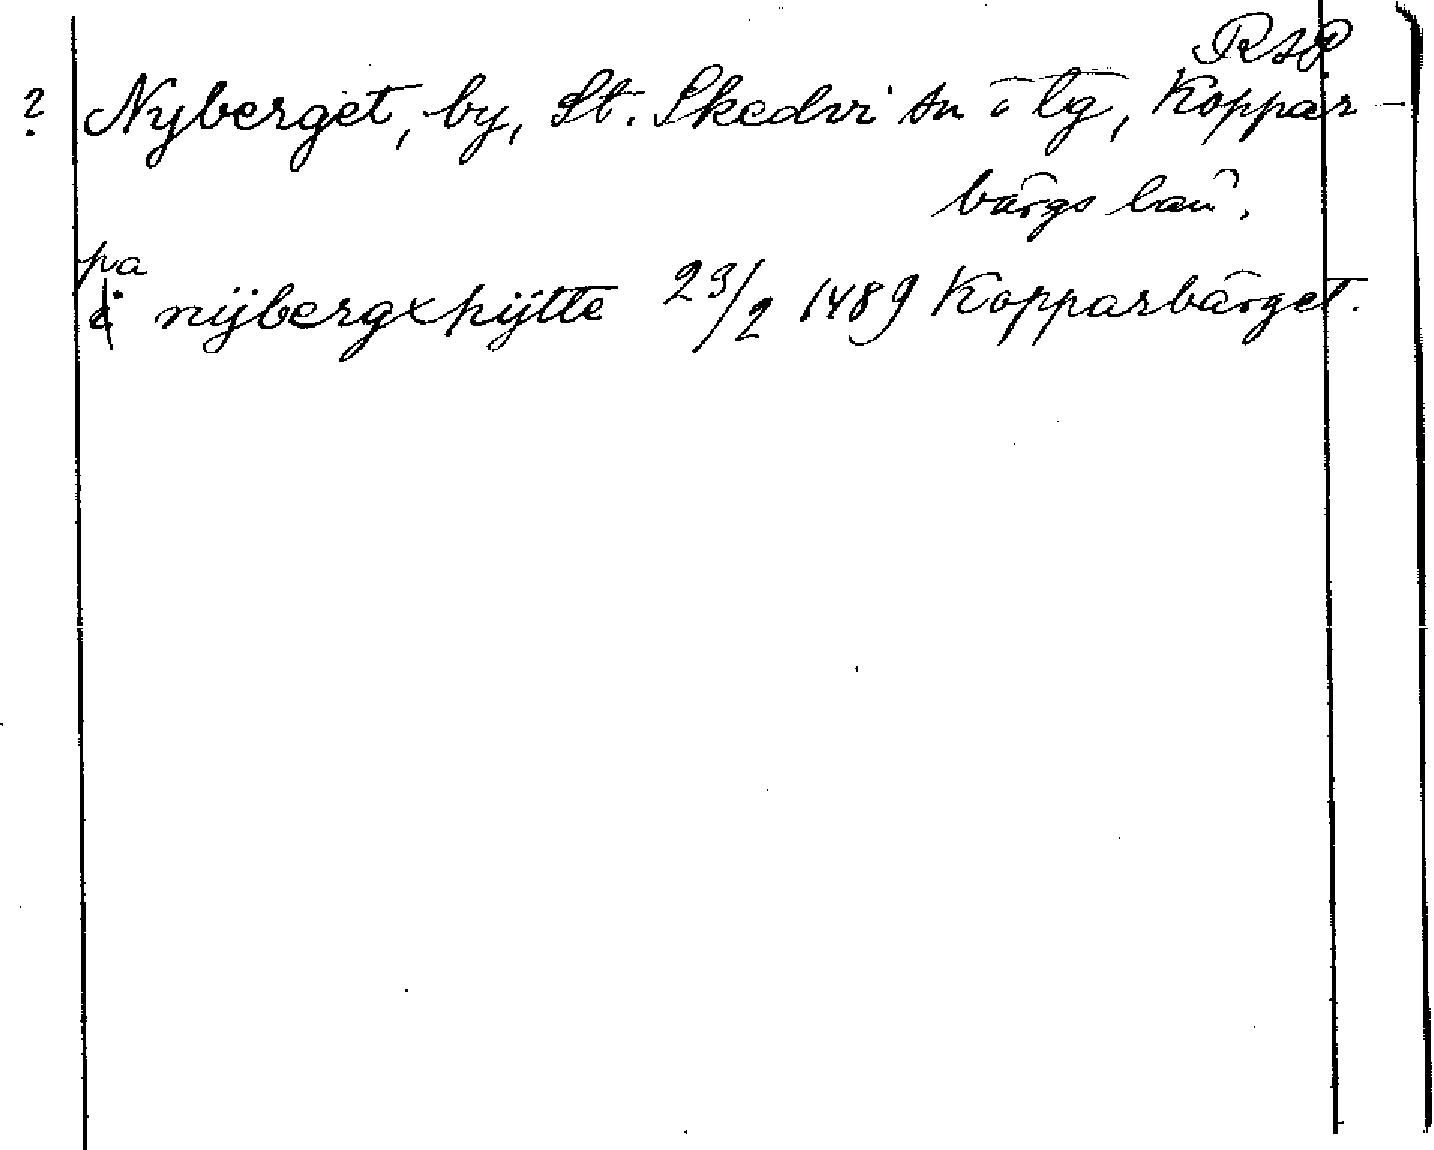 RAP
? Nyberget, by, St. Skedvi sn o tg, Koppar-
bärgs län.
pa
å nÿbergxhÿtte 23/2 1489 Kopparbärget.